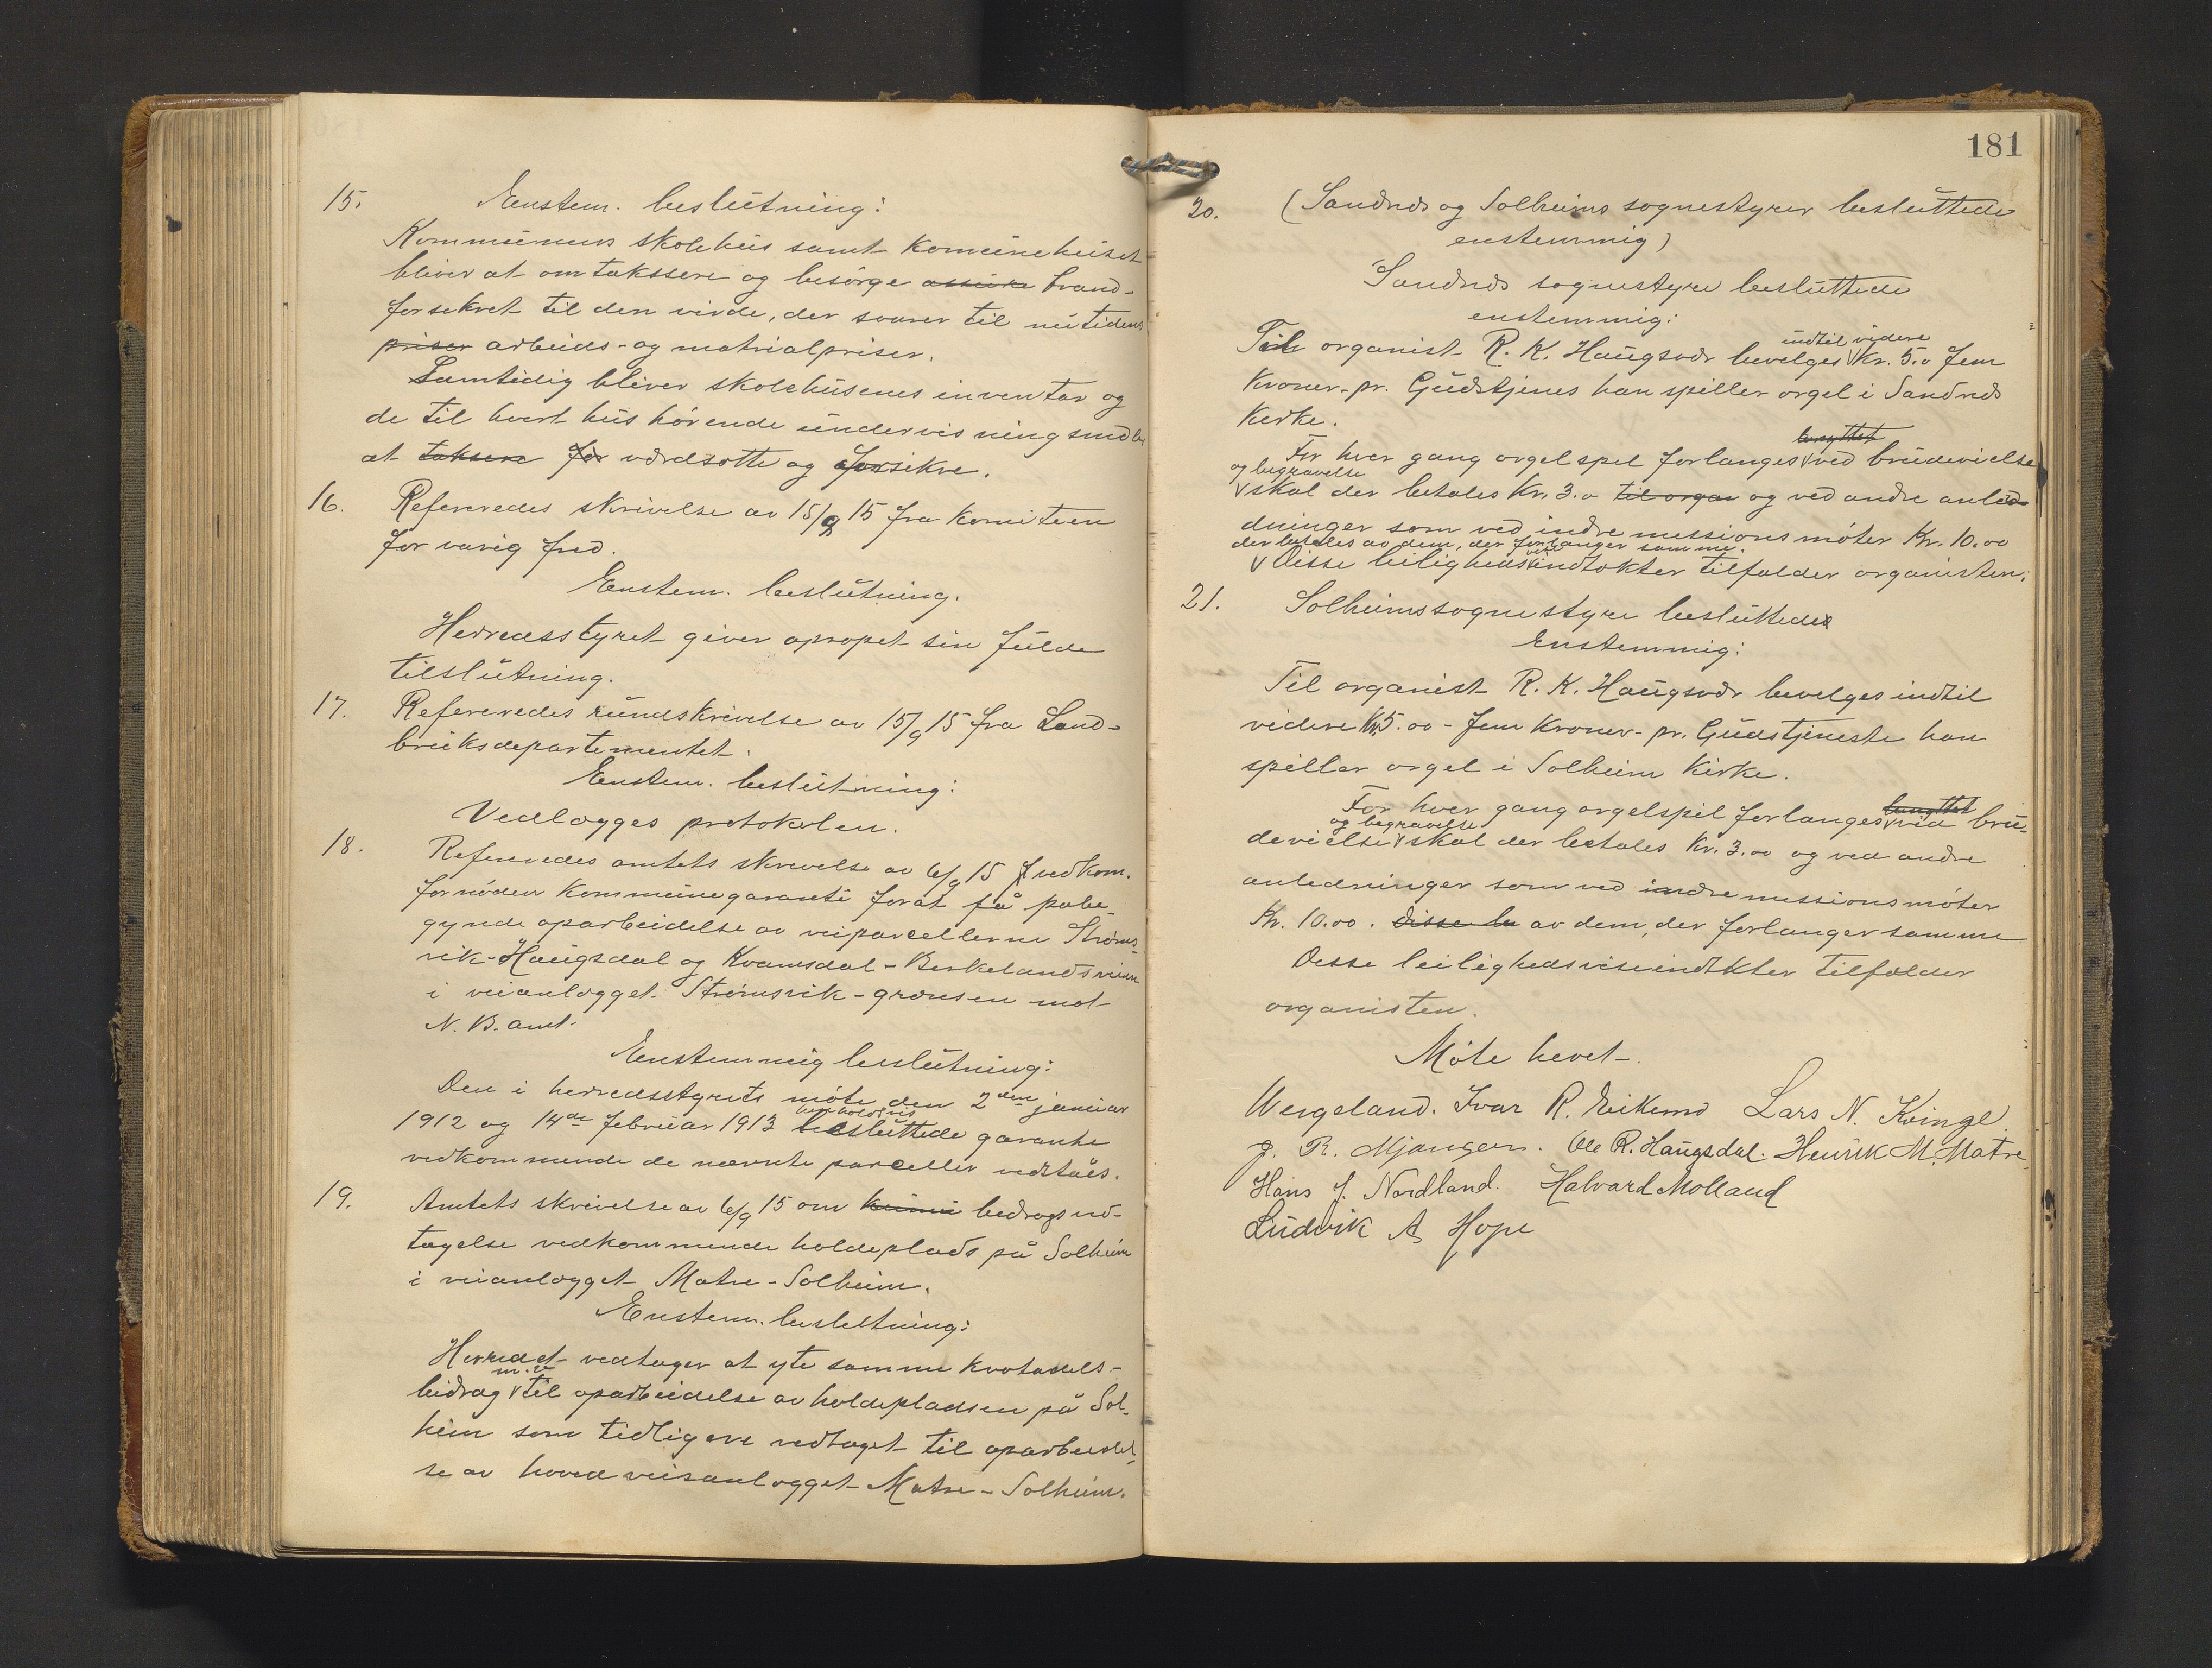 15. Enstem. beslutning:
Kommunens skolehus samt komunehuset
bliver at omtakssere og besørge assure brand-
forsekret til den verde, der svarer til nutidens
priser arbeids- og matrialpriser.
Samtidig bliver skolehusenes inventar og
de til hvert hus hørende undervisningsmdler
at taksere for værdsætte og forsikre.
16. Refereredes skrivelse av 15/9 15 fra komiteen
for varig fred.
Enstem. beslutning.
Herredsstyret giver opropet sin fulde
tilslutning.
17. Refereredes rundskrivelse av 15/9 15 fra Land-
bruksdepartementet.
Enstem. beslutning:
Vedlægges protokolen.
18. Refereredes amtets skrevelse av 6/9 15 vedkom.
fornøden kommunegaranti forat få påbe-
gynde oparbeidelse av veiparcellerne Strøms-
vik-Haugsdal og Kvamsdal-Berkelandsveien
i veianlægget Strømsvik-grænsen mot
N. B. amt.
Enstemmig beslutning:
Den i herredsstyrets møte den 2den januar
henholdsvis
1912 og 14de februar 1913 besluttede garante
vedkommende de nævnte parceller vedtaes.
19. Amtets skrivelse av 6/9 15 om bedragsved-
tagelse vedkommende holdeplads på Solheim
i veianlægget Matre-Solheim.
Enstem. beslutning:
Herredet vedtager at yte samme kvotadels-
m.v
bidrag til oparbeidelse av holdepladsen på Sol-
heim som tidligere vedtaget til oparbeidel-
se av hovedveisanlægget Matre-Solheim.
181
20. (Sandnes og Solheims sognestyrer besluttede
enstemmig)
Sandnes sognestyre besluttede
enstemmig:
indtil videre
Til organist R. K. Haugsvær bevelges kr. 5.0 fem
kroner-pr. Gudstjenes han spiller orgel i Sandnes
kerke.
benyttet
For hver gang orgelspel forlanges ved brudevielse
og begravelse
skal der betales kr. 3.0 til organ og ved andre anled-
dninger som ved indre missionsmøter Kr. 10.00
der betales av dem, der forlanger samme.
Disse leilighedsviseindtækter tilfalder organisten.
21. Solheimssognestyre besluttede
Enstemmig:
Til organist R. K. Haugsvær bevelges indtil
videre Kr 5.00 - fem kroner- pr. Gudstjeneste han
spiller orgel i Solheim kirke.
For hver gang orgelspil forlanges benyttet ved bru-
og begravelse
devielse skal der betales Kr. 3.00 og ved andre
anledninger som ved indre missionsmøter
Kr. 10.00. Disse be av dem, der forlanger samme
Desse leilighedsviseindtkter tilfalder
organisten.
Møte hevet.
Wergeland. Ivar R. Eikemo Lars N. Kvinge.
J. R. Mjanger. Ole R. Haugsdal. Henrik M. Matre
Hans J. Nordland. Halvard Molland
Ludvik A Hope